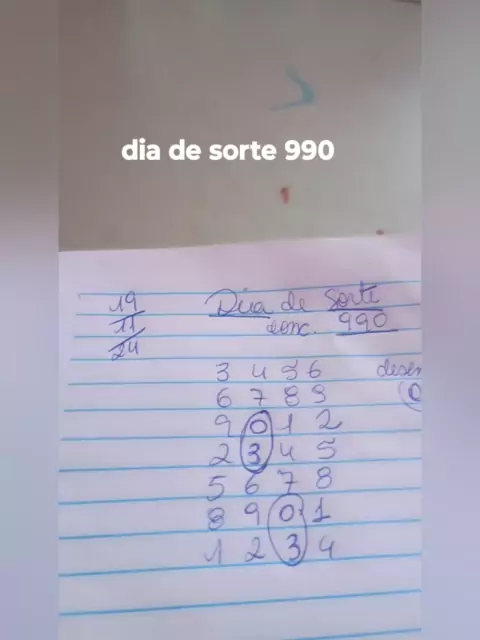 dia de sorte 990
19
11
24
Dia de Sorte
conc. 990
3 4 5 6
6 7 8 9
9 0 1 2
2 3 4 5
5 6 7 8
8 9 0 1
1 2 3 4